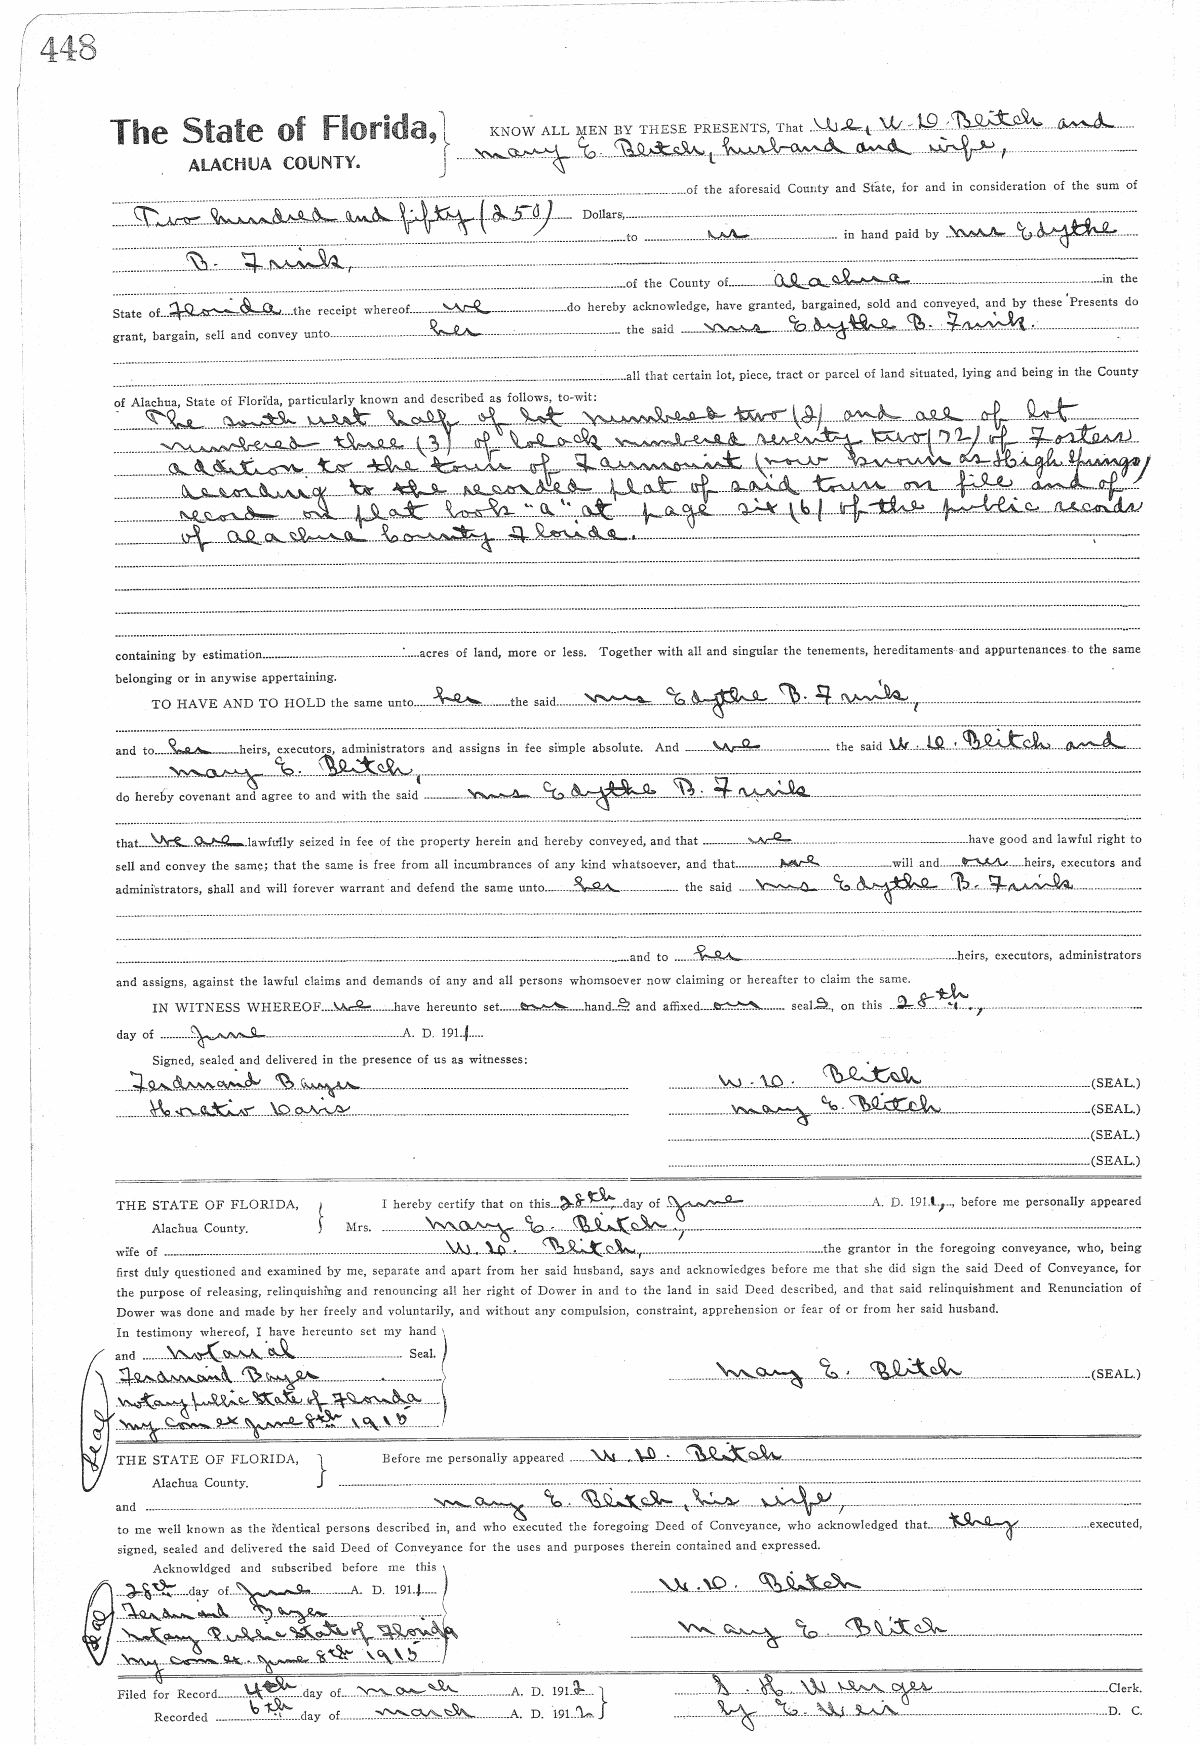 448
The State of Florida, KNOW ALL MEN BY THESE PRESENTS, That We, W. D. Blitch and
ALACHUA COUNTY. Mary E. Blitch, husband and wife,
of the aforesaid County and State, for and in consideration of the sum of
Two hundred and fifty (250) Dollars,
to us in hand paid by Mrs Edythe
B. Frink,
of the County of Alachua in the
State of Florida the receipt whereof we do hereby acknowledge, have granted, bargained, sold and conveyed, and by these Presents do
grant, bargain, sell and convey unto her the said Mrs Edythe B. Frink.
all that certain lot, piece, tract or parcel of land situated, lying and being in the County
of Alachua, State of Florida, particularly known and described as follows, to-wit:
The south west half of lot numbered two (2) and all of lot
numbered three (3) of block numbered seventy two (72) of Fosters
addition to the town of Fairmount (now known as High Springs)
according to the recorded plat of said town on file and of
record on plat book "a" at page six (6) of the public records
of Alachua County Florida.
containing by estimation acres of land, more or less. Together with all and singular the tenements, hereditaments and appurtenances to the same
belonging or in anywise appertaining.
TO HAVE AND TO HOLD the same unto her the said Mrs Edythe B. Frink,
and to her heirs, executors, administrators and assigns in fee simple absolute. And we the said W. D. Blitch and
Mary E. Blitch,
do hereby covenant and agree to and with the said Mrs Edythe B. Frink
that we are lawfully seized in fee of the property herein and hereby conveyed, and that we have good and lawful right to
sell and convey the same; that the same is free from all incumbrances of any kind whatsoever, and that we will and our heirs, executors and
administrators, shall and will forever warrant and defend the same unto her the said Mrs Edythe B. Frink
and to her heirs, executors, administrators
and assigns, against the lawful claims and demands of any and all persons whomsoever now claiming or hereafter to claim the same.
IN WITNESS WHEREOF we have hereunto set our hand s and affixed our seal s, on this 28th,
day of June A. D. 1911
Signed, sealed and delivered in the presence of us as witnesses:
Ferdinand Bayer W. D. Blitch (SEAL.)
Horatio Davis Mary E. Blitch (SEAL.)
(SEAL.)
(SEAL.)
THE STATE OF FLORIDA, I hereby certify that on this 28th, day of June A. D. 1911, before me personally appeared
Alachua County. Mrs. Mary E. Blitch,
wife of W. D. Blitch, the grantor in the foregoing conveyance, who, being
first duly questioned and examined by me, separate and apart from her said husband, says and acknowledges before me that she did sign the said Deed of Conveyance, for
the purpose of releasing, relinquishing and renouncing all her right of Dower in and to the land in said Deed described, and that said relinquishment and Renunciation of
Dower was done and made by her freely and voluntarily, and without any compulsion, constraint, apprehension or fear of or from her said husband.
In testimony whereof, I have hereunto set my hand
and Notarial Seal.
Ferdinand Bayer Mary E. Blitch (SEAL)
Notary public State of Florida
My com ex June 8th 1915
Seal
THE STATE OF FLORIDA, Before me personally appeared W. D. Blitch
Alachua County.
and Mary E. Blitch, his wife,
to me well known as the identical persons described in, and who executed the foregoing Deed of Conveyance, who acknowledged that they executed,
signed, sealed and delivered the said Deed of Conveyance for the uses and purposes therein contained and expressed.
Acknowldged and subscribed before me this
28th day of June A. D. 1911 W. D. Blitch
Ferdinand Bayer
Notary Public State of Florida Mary E. Blitch
My com ex. June 8th 1915
Seal
Filed for Record 4th day of March A. D. 1912 S. H. Wienges Clerk.
Recorded 6th day of March A. D. 1912 by E. Weir D. C.